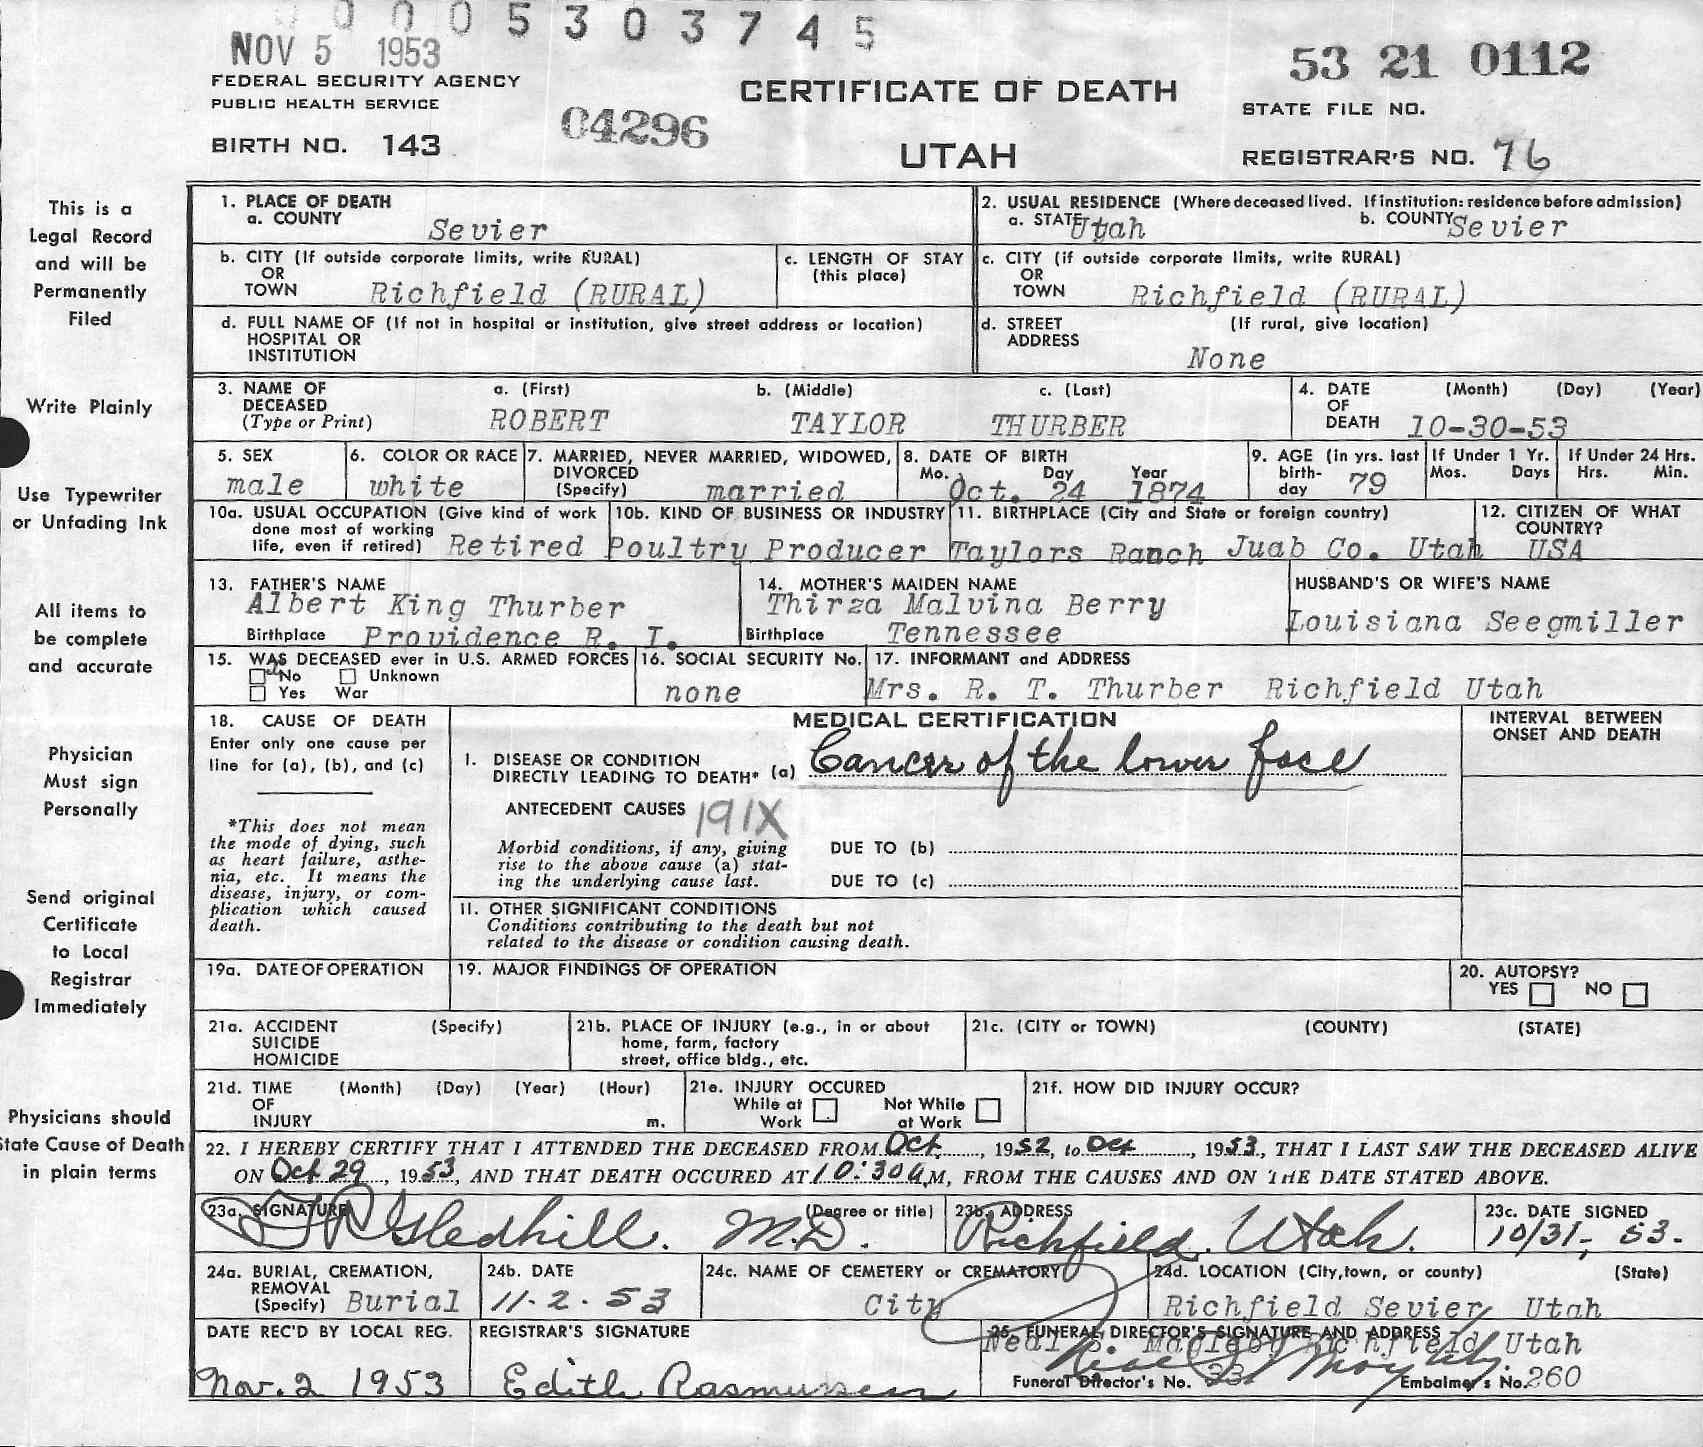 0005303745
NOV 5 1953
53 21 0112
FEDERAL SECURITY AGENCY
PUBLIC HEALTH SERVICE
CERTIFICATE OF DEATH
STATE FILE NO.
BIRTH NO. 143
04296
UTAH
REGISTRAR'S NO. 76
This is a
Legal Record
and will be
Permanently
Filed
Write Plainly
Use Typewriter
or Unfading Ink
All items to
be complete
and accurate
Physician
Must sign
Personally
Send original
Certificate
to Local
Registrar
Immediately
Physicians should
State Cause of Death
in plain terms
1. PLACE OF DEATH
a. COUNTY Sevier
2. USUAL RESIDENCE (Where deceased lived. If institution: residence before admission)
a. STATE Utah b. COUNTY Sevier
b. CITY (If outside corporate limits, write RURAL)
OR
TOWN Richfield (RURAL)
c. LENGTH OF STAY
(this place)
c. CITY (if outside corporate limits, write RURAL)
OR
TOWN Richfield (RURAL)
d. FULL NAME OF (If not in hospital or institution, give street address or location)
HOSPITAL OR
INSTITUTION
d. STREET (If rural, give location)
ADDRESS
None
3. NAME OF DECEASED (Type or Print)
a. (First) b. (Middle) c. (Last)
ROBERT TAYLOR THURBER
4. DATE (Month) (Day) (Year)
OF
DEATH 10-30-53
5. SEX
male
6. COLOR OR RACE
white
7. MARRIED, NEVER MARRIED, WIDOWED,
DIVORCED
(Specify) married
8. DATE OF BIRTH
Mo. Day Year
Oct. 24 1874
9. AGE (in yrs. last
birth-
day 79
If Under 1 Yr.
Mos. Days
If Under 24 Hrs.
Hrs. Min.
10a. USUAL OCCUPATION (Give kind of work
done most of working
life, even if retired) Retired
10b. KIND OF BUSINESS OR INDUSTRY
Poultry Producer
11. BIRTHPLACE (City and State or foreign country)
Taylors Ranch Juab Co. Utah
12. CITIZEN OF WHAT
COUNTRY?
USA
13. FATHER'S NAME
Albert King Thurber
Birthplace Providence R. I.
14. MOTHER'S MAIDEN NAME
Thirza Malvina Berry
Birthplace Tennessee
HUSBAND'S OR WIFE'S NAME
Louisiana Seegmiller
15. WAS DECEASED ever in U.S. ARMED FORCES
No Unknown
Yes War
16. SOCIAL SECURITY No.
none
17. INFORMANT and ADDRESS
Mrs. R. T. Thurber Richfield Utah
18. CAUSE OF DEATH
Enter only one cause per
line for (a), (b), and (c)
*This does not mean
the mode of dying, such
as heart failure, asthe-
nia, etc. It means the
disease, injury, or com-
plication which caused
death.
MEDICAL CERTIFICATION
INTERVAL BETWEEN
ONSET AND DEATH
I. DISEASE OR CONDITION
DIRECTLY LEADING TO DEATH* (a) Cancer of the lower face
ANTECEDENT CAUSES 191X
Morbid conditions, if any, giving
rise to the above cause (a) stat-
ing the underlying cause last.
DUE TO (b)
DUE TO (c)
11. OTHER SIGNIFICANT CONDITIONS
Conditions contributing to the death but not
related to the disease or condition causing death.
19a. DATE OF OPERATION
19. MAJOR FINDINGS OF OPERATION
20. AUTOPSY?
YES NO
21a. ACCIDENT (Specify)
SUICIDE
HOMICIDE
21b. PLACE OF INJURY (e.g., in or about
home, farm, factory
street, office bldg., etc.
21c. (CITY or TOWN) (COUNTY) (STATE)
21d. TIME (Month) (Day) (Year) (Hour)
OF
INJURY m.
21e. INJURY OCCURED
While at Work Not While at Work
21f. HOW DID INJURY OCCUR?
22. I HEREBY CERTIFY THAT I ATTENDED THE DECEASED FROM Oct, 1952, to Oct, 1953, THAT I LAST SAW THE DECEASED ALIVE
ON Oct 29, 1953, AND THAT DEATH OCCURED AT 10:30 a.M, FROM THE CAUSES AND ON THE DATE STATED ABOVE.
23a. SIGNATURE (Degree or title)
Gledhill. M.D.
23b. ADDRESS
Richfield. Utah.
23c. DATE SIGNED
10/31, 53.
24a. BURIAL, CREMATION,
REMOVAL
(Specify) Burial
24b. DATE
11-2-53
24c. NAME OF CEMETERY or CREMATORY
City
24d. LOCATION (City, town, or county) (State)
Richfield Sevier Utah
DATE REC'D BY LOCAL REG.
Nov. 2 1953
REGISTRAR'S SIGNATURE
Edith Rasmussen
25. FUNERAL DIRECTOR'S SIGNATURE AND ADDRESS
Neal S. Magleby Richfield Utah
Funeral Director's No. Embalmer's No. 260